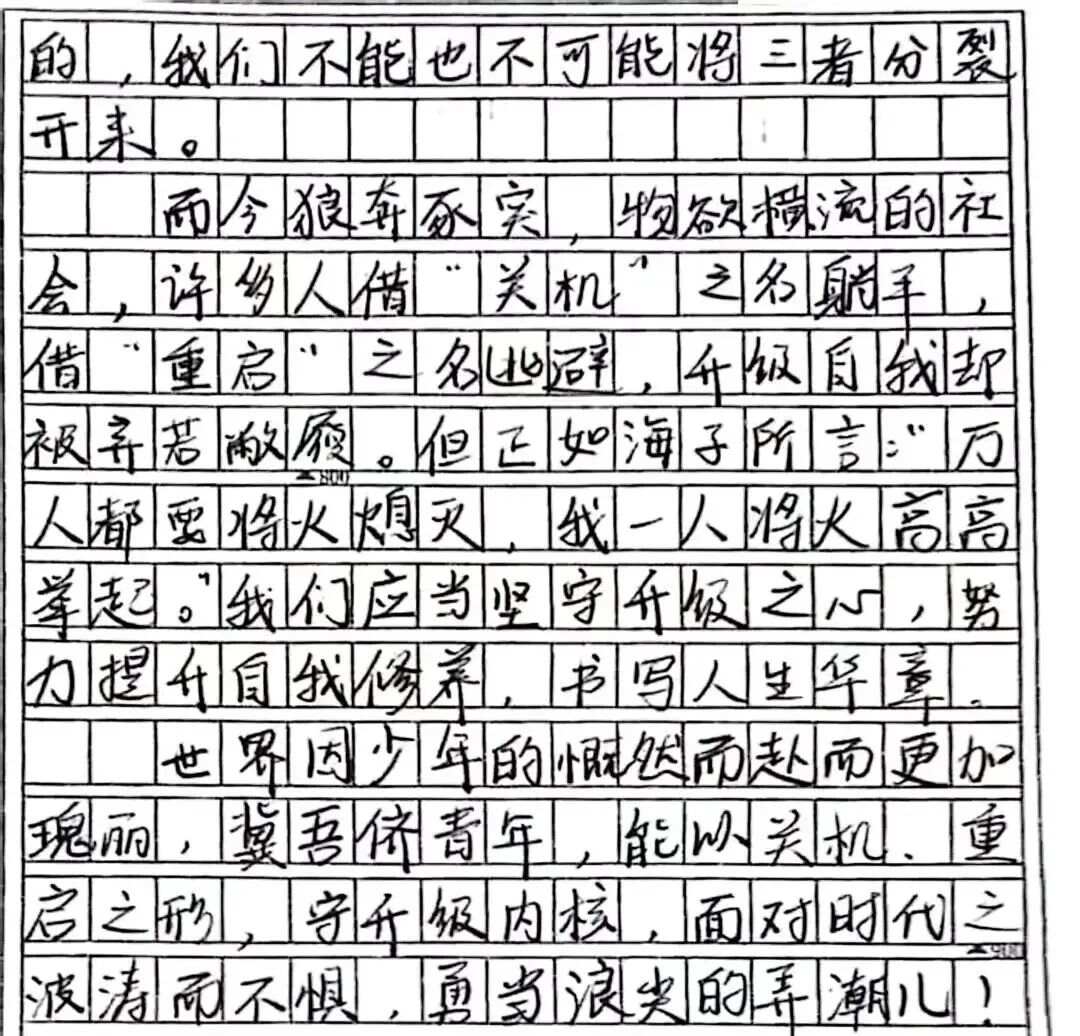 的,我们不能也不可能将三者分裂
开来。
而今狼奔豕突,物欲横流的社
会,许多人借“关机”之名躺平,
借“重启”之名逃避,升级自我却
被弃若敝屣。但正如海子所言:“万
▲800
人都要将火熄灭,我一人将火高高
举起。”我们应当坚守升级之心,努
力提升自我修养,书写人生华章.
世界因少年的慨然而赴而更加
瑰丽,冀吾侪青年,能以关机、重
启之形,守升级内核,面对时代之
▲900
波涛而不惧,勇当浪尖的弄潮儿!